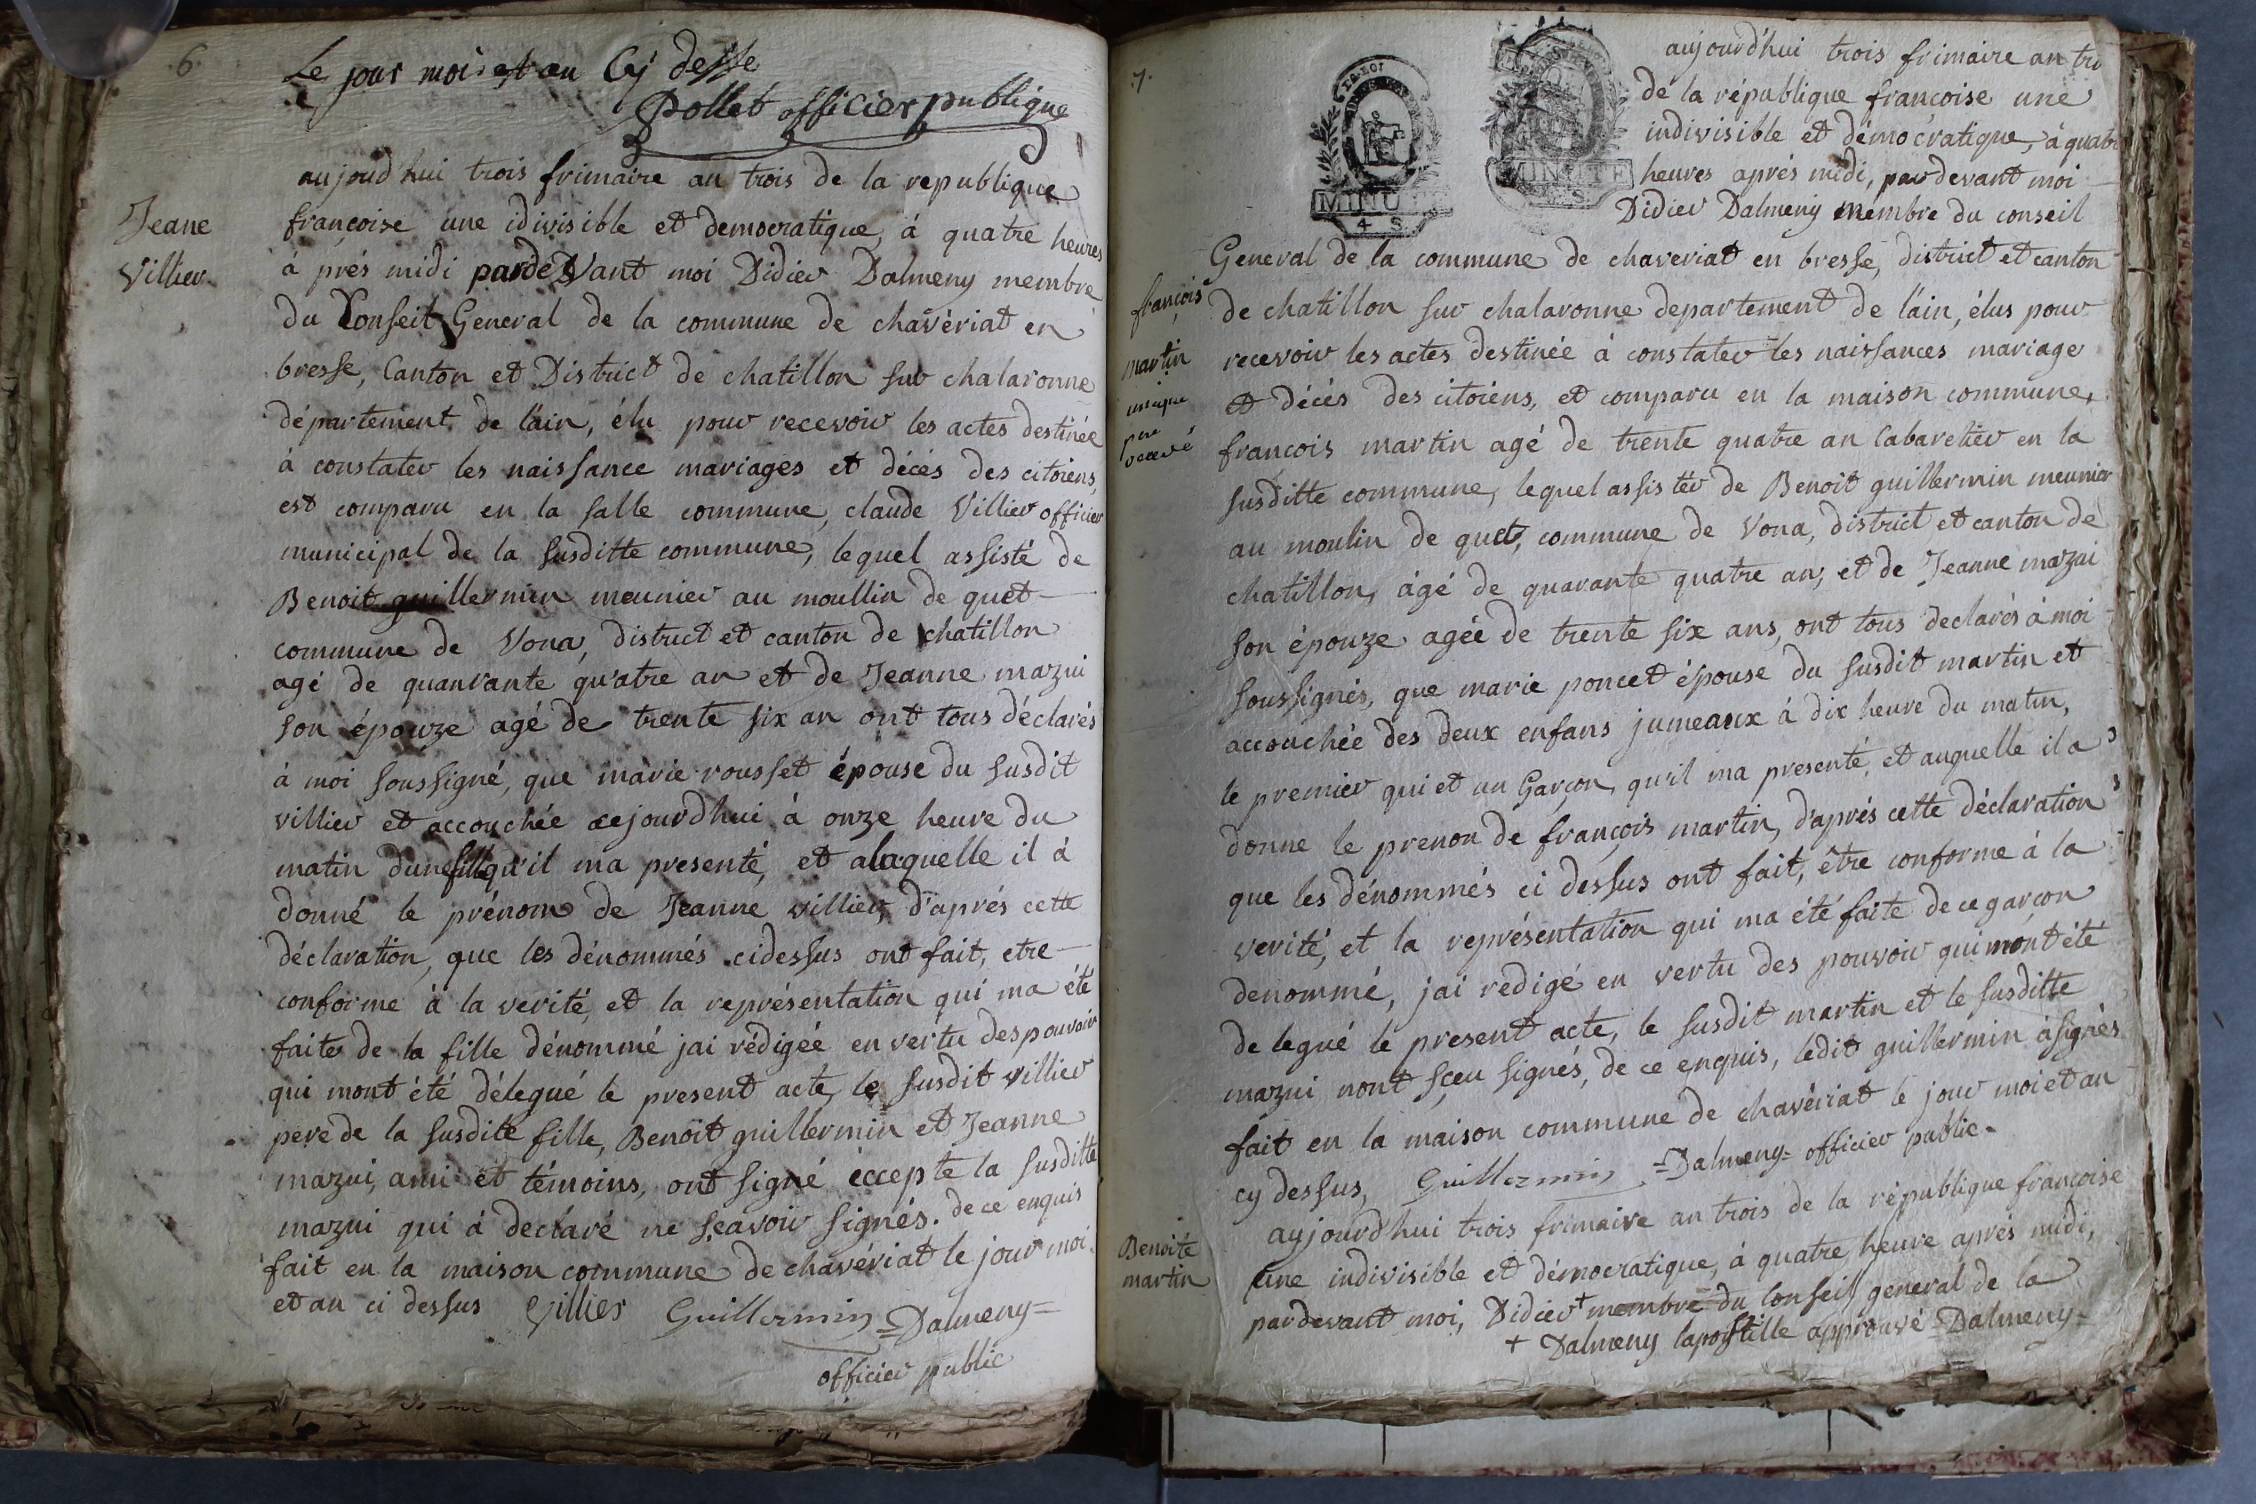 6.
Le jour mois et an Cy desse
Pollet officier publique
Jeane
Villier
aujoud hui trois frimaire an trois de la republique
françoise une idivisible et democratique, à quatre heures
à prés midi pardeVant moi Didier Dalmeny membre
du Conseil General de la commune de chavériat en
bresse, Canton et District de chatillon sur chalaronne
département de l'ain, élu pour recevoir les actes destinée
à constater les naissance mariages et décés des citoiens,
est comparu en la salle commune, claude Villier officier
municipal de la susditte commune, lequel assisté de
Benoit guillermin meunier au moullin de quet
commune de Vona, district et canton de chatillon
agé de quanrante quatre an et de Jeanne mazui
son épouze agé de trente six an ont tous déclarés
à moi soussigné, que marie rousset épouse du susdit
villier et accouchée aejourdhui à onze heure du
matin dune fille qu'il ma presenté, et alaquelle il à
donné le prénom de Jeanne villier, d'aprés cette
déclaration, que les dénommés cidessus ont fait, etre
conforme à la verité, et la représentation qui ma été
faite de la fille dénommé jai rédigée en vertu des pouvoir
qui mont été délegué le present acte, le susdit villier
pere de la susdite fille, Benoit guillermin et Jeanne
mazui, ami et témoins, ont signé éccepte la susditte
mazui qui à declaré ne sçavoir signés. de ce enquis
fait en la maison commune de chavériat le jour moi
et an ci dessus Villier Guillermin =Dalmeny=
officier public
7.
MINUTE
4 S
MINUTE
S
aujourd'hui trois frimaire an tro
de la république françoise une
indivisible et démocratique, à quatre
heures aprés midi, par devant moi
Didier Dalmeny membre du conseil
General de la commune de chaveriat en bresse, district et canton
françois
martin
de chatillon sur chalaronne departement de l'ain, élus pour
recevoir les actes destinée à constater les naissances mariage
et décés des citoiens, et comparu en la maison commune,
francois martin agé de trente quatre an Cabaretier en la
susditte commune, lequel assister de Benoit guillermin meunier
au moulin de quet, commune de Vona, district et canton de
chatillon, ágé de quarante quatre an, et de Jeanne mazui
son épouze agée de trente six ans, ont tous declarés à moi
soussignés, que marie poncet épouse du susdit martin et
accouchée des deux enfans jumeaux à dix heure du matin,
le premier qui et un Garçon, qu'il ma presenté, et auquelle il a
donne le prenon de françois martin, d'aprés cette déclaration
que les dénommés ci dessus ont fait, être conforme à la
verité, et la représentation qui ma été faite de ce garçon
denommé, jai redigé en vertu des pouvoir qui mont été
delegué le present acte, le susdit martin et le susditte
mazui nont sçeu signés, de ce enquis, ledit guillermin à signés
fait en la maison commune de chavériat le jour moi et an
cy dessus, Guillermin =Dalmeny= officier public.
Benoite
martin
aujourd'hui trois frimaire an trois de la république françoise
une indivisible et démocratique, à quatre heure aprés midi,
pardevant moi, Didier + membre du Conseil general de la
+ Dalmeny lapostille approuvé =Dalmeny=